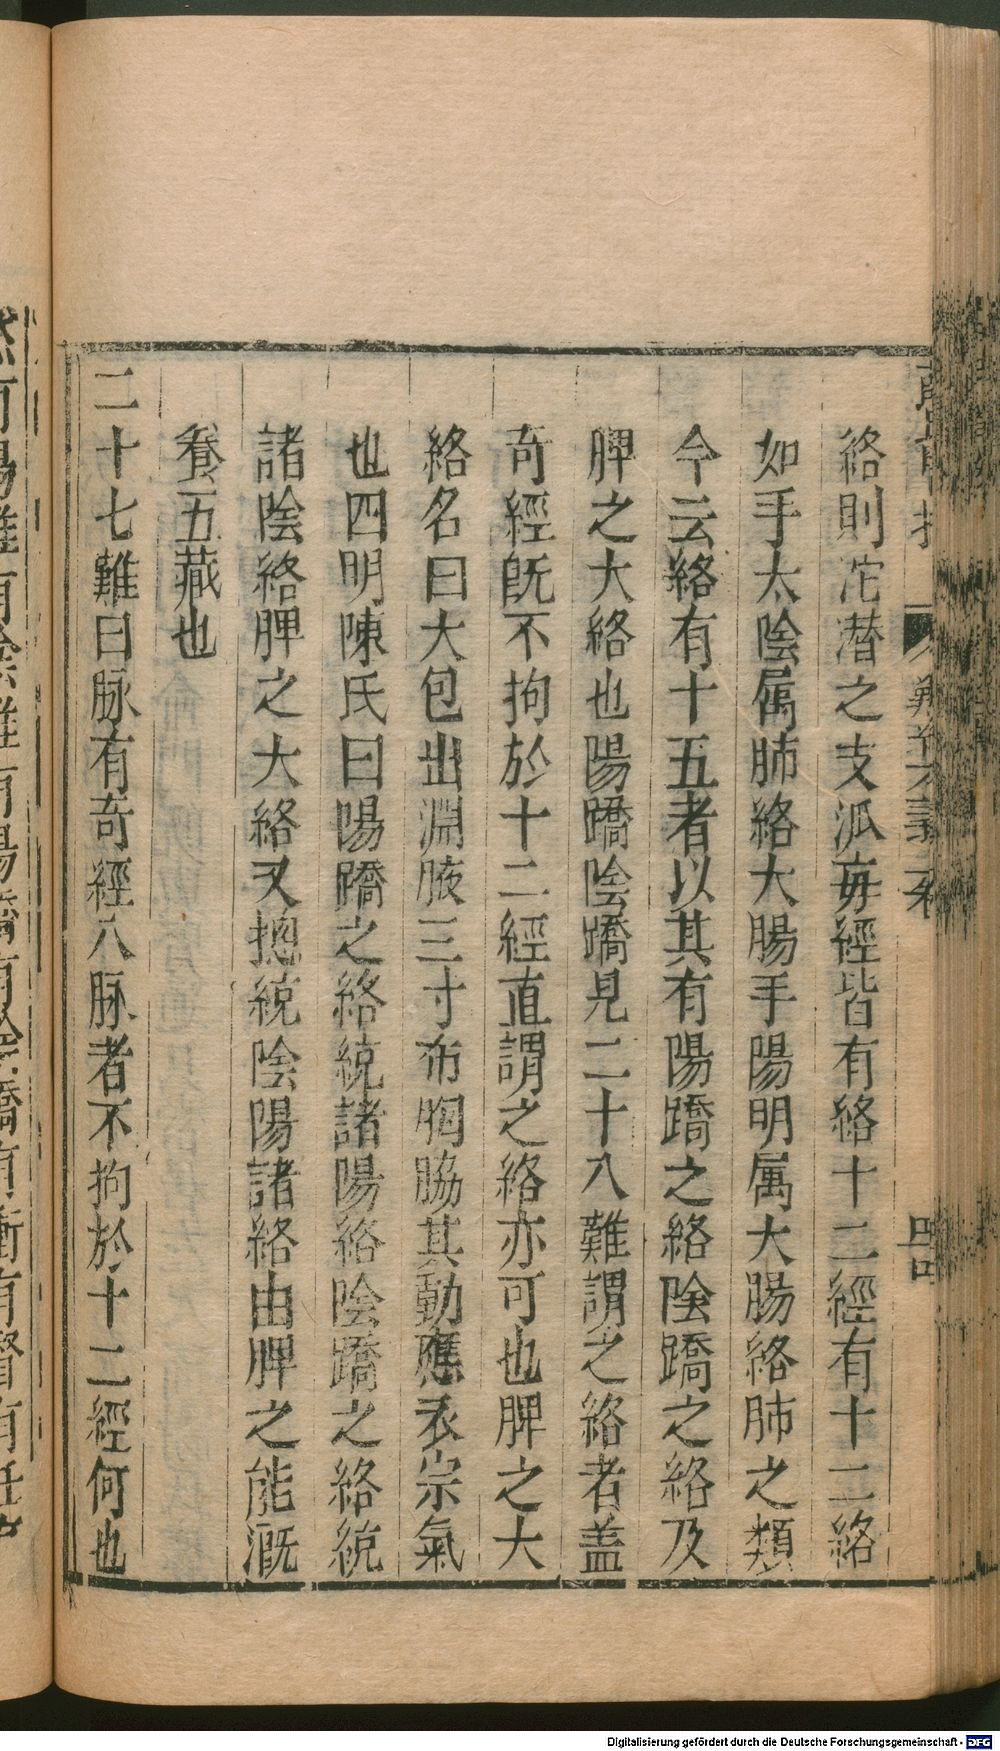 絡則沱潜之支泒毎經皆有絡十二經有十二絡
如手太陰属肺絡大腸手陽明属大腸絡肺之類
今云絡有十五者以其有陽蹻之絡陰蹻之絡及
脾之大絡也陽蹻陰蹻見二十八難謂之絡者盖
奇經既不拘於十二經直謂之絡亦可也脾之大
絡名曰大包出淵腋三寸布胸脇其動應衣宗氣
也四明陳氏曰陽蹻之絡統諸陽絡陰蹻之絡統
諸陰絡脾之大絡又摠統陰陽諸絡由脾之能漑
養五藏也
二十七難曰脉有奇經八脉者不拘於十二經何也
然有陽維有陰維有陽蹻有陰蹻有衝有督有任
Digitalisierung gefördert durch die Deutsche Forschungsgemeinschaft - DFG